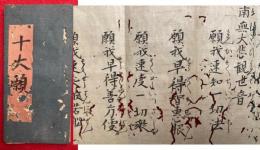 十大願
南無大悲観世音
願我速知一切法
願我早得智恵眼
願我速度一切衆
願我早得善方便
願我速乗般若船